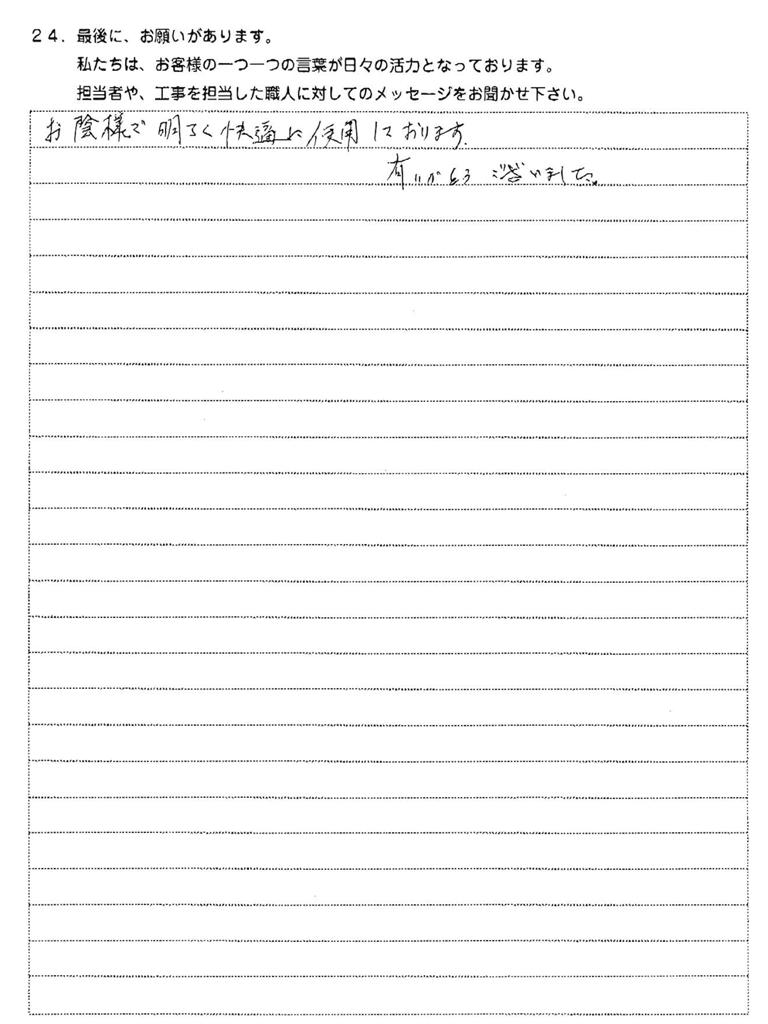 24．最後に、お願いがあります。
私たちは、お客様の一つ一つの言葉が日々の活力となっております。
担当者や、工事を担当した職人に対してのメッセージをお聞かせ下さい。
お陰様で明るく快適に使用しております。
有りがとうございました。